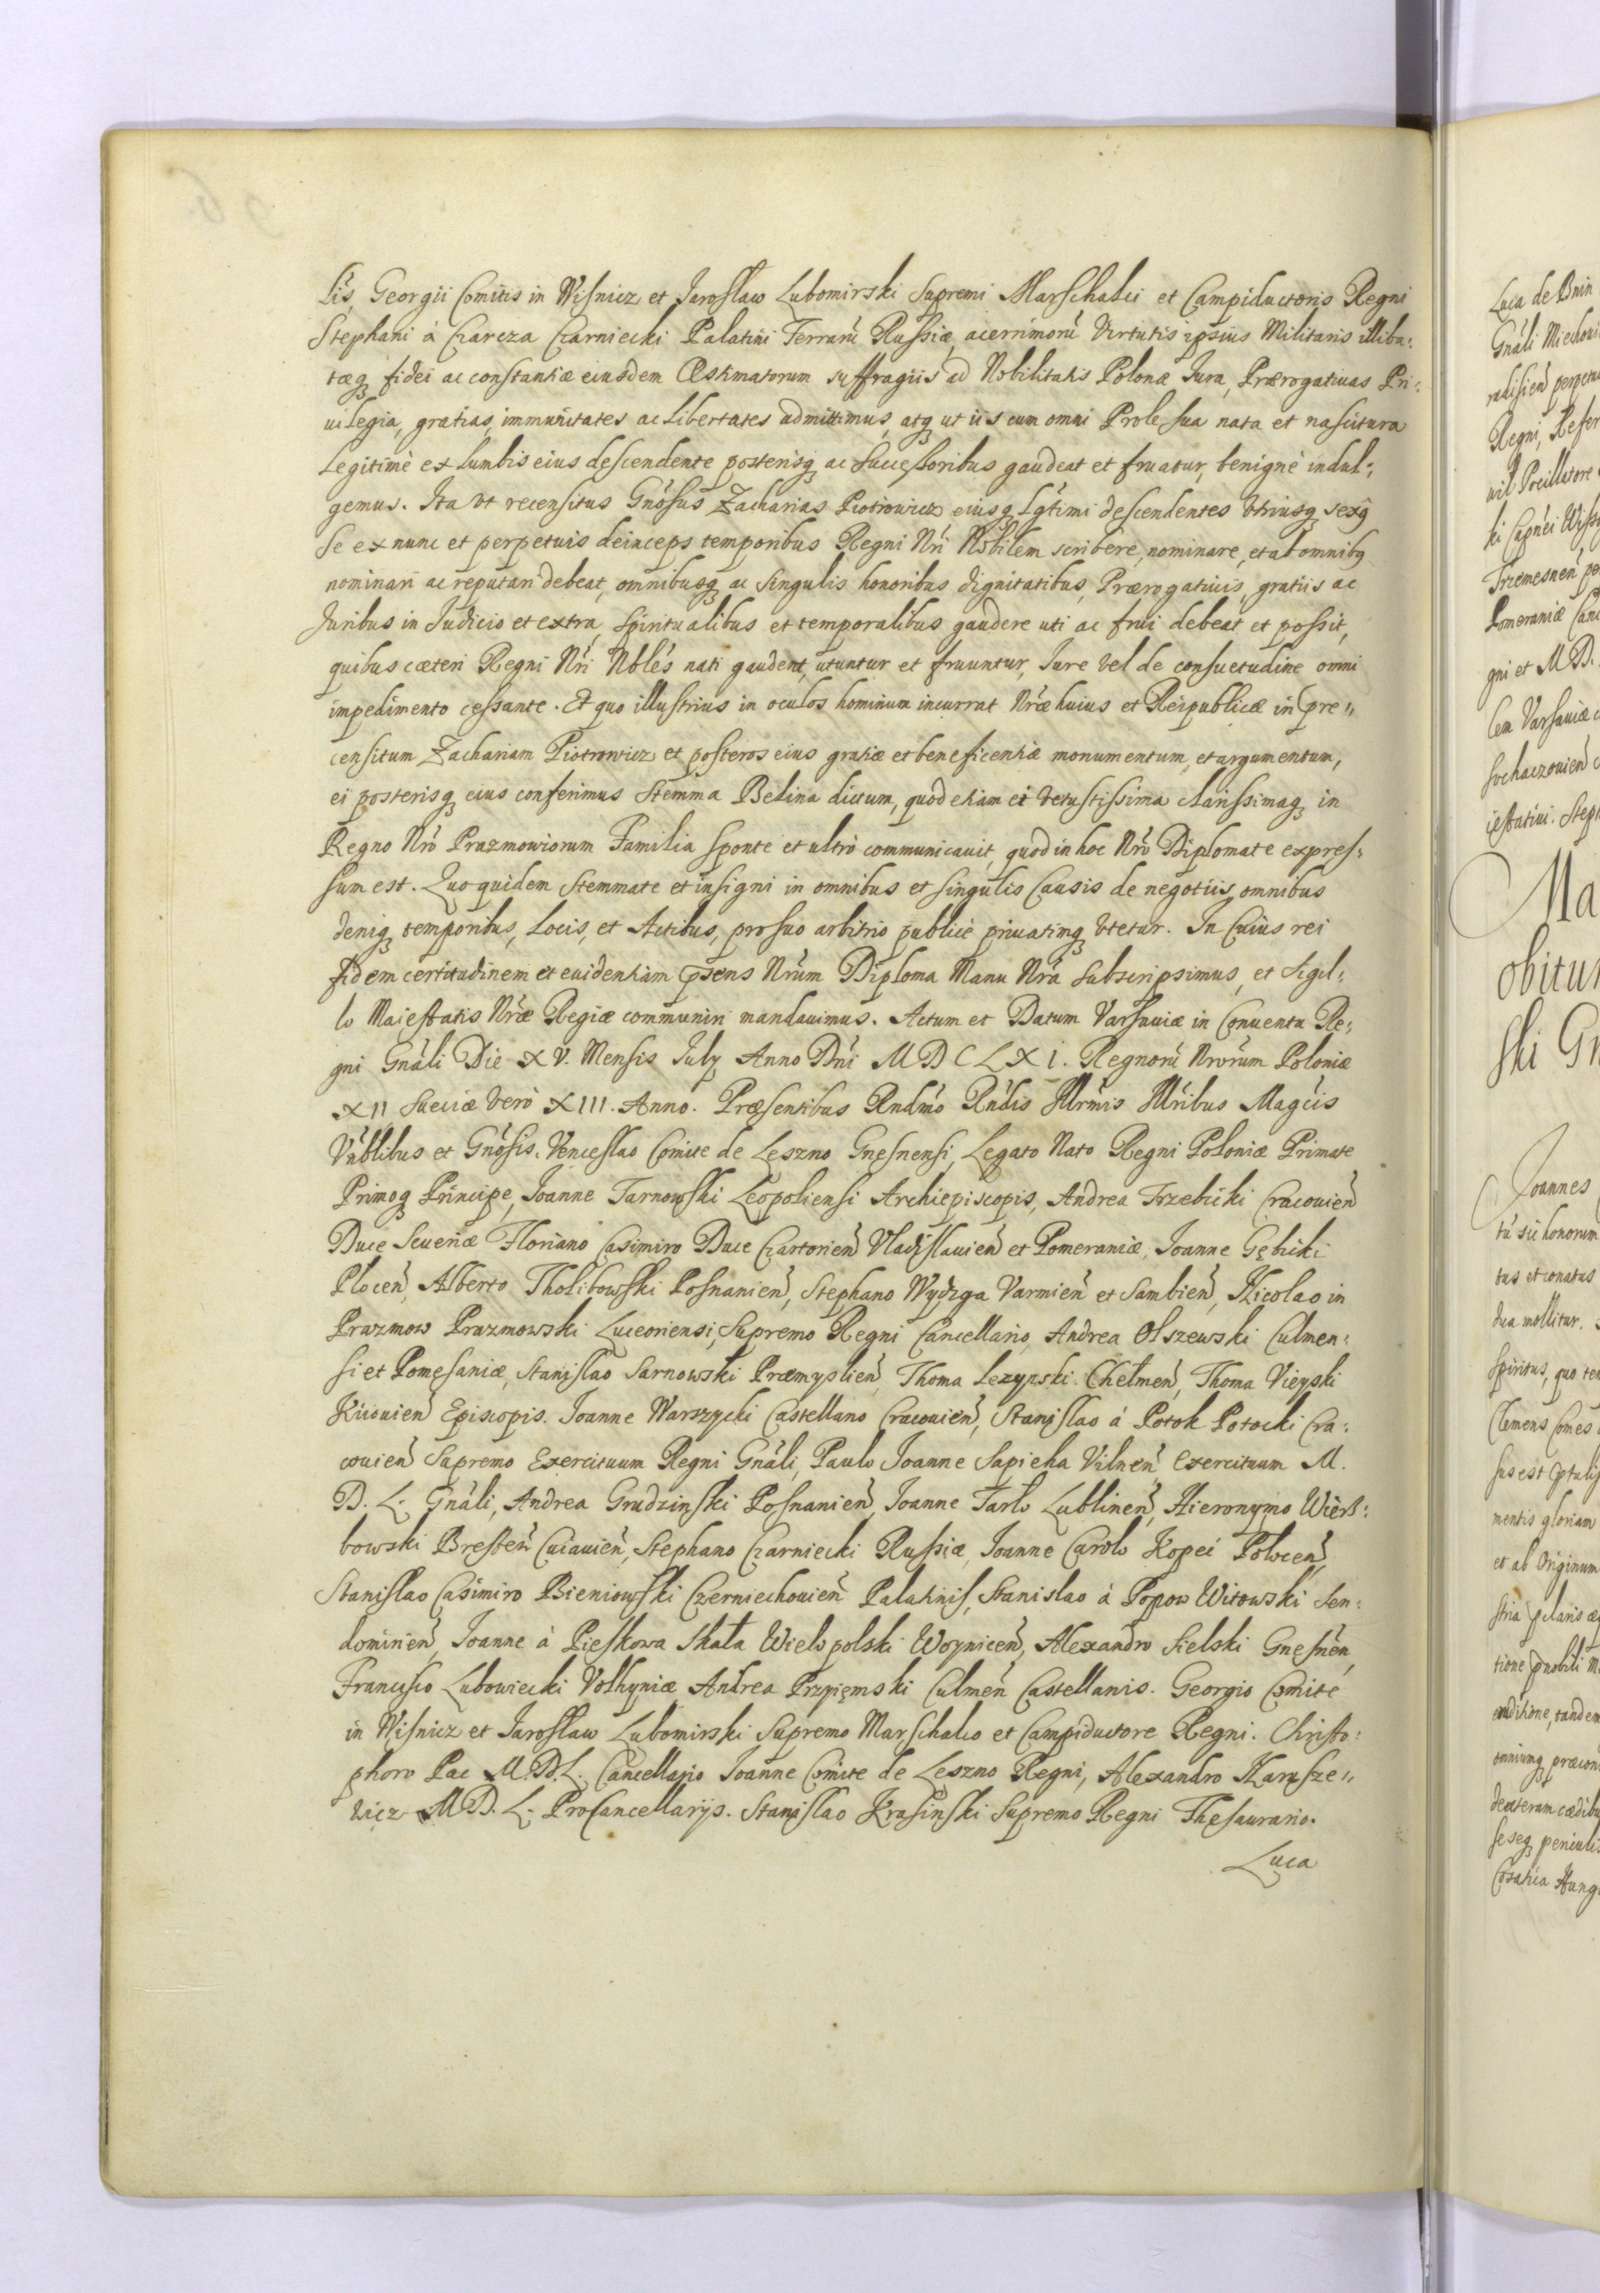 lis, Georgii Comitis in Wisnicz et Jaroslaw Lubomirski Supremi Marschalci et Campiductoris Regni
Stephani á Czarcza Czarniecki Palatini Terrarū Russiæ, acerrimorū Virtutis ipsius Militaris illiba:
tæq fidei ac constantiæ eiusdem Æstimatorum suffragiis ad Nobilitatis Polonæ Jura, Prærogatiuas Pri:
uilegia, gratias, immunitates ac Libertates admittimus, atq ut iis cum omni Prole sua nata et nascitura
Legitimè ex Lumbis eius descendente posterisq ac Successoribus gaudeat et fruatur, benignè indul:
gemus. Ita vt recensitus Gnōsus Zacharias Piotrowicz eiusq Lgtimi descendentes Vtriusq sexq
Se ex nunc et perpetuis deinceps temporibus Regni Nri Nobilem scribere, nominare, et ab omnibq
nominari ac reputari debeat, omnibusq ac singulis honoribus dignitatibus, Prærogatiuis, gratiis ac
Juribus in Judicio et extra, Spiritualibus et temporalibus gaudere uti ac frui debeat et possit,
quibus cæteri Regni Nri Nbles nati gaudent, utuntur et fruuntur, Jure Vel de consuetudine omni
impedimento cessante. Et quo illustrius in oculos hominum incurrat Nræ huius et Reipublicæ in pre"
censitum Zachariam Piotrowicz et posteros eius gratiæ et beneficentiæ monumentum, et argumentum,
ei posterisq eius conferimus Stemma Belina dictum, quod etiam ei Vetustissima clarissimaq in
Regno Nro Prazmowiorum Familia sponte et ultrò communicauit, quod in hoc Nro Diplomate expres:
sum est. Quo quidem Stemmate et insigni in omnibus et singulis Causis de negotiis omnibus
deniq temporibus, Locis, et Actibus, pro suo arbitrio publicè priuatimq Vtetur. In Cuius rei
fidem certitudinem et euidentiam psens Nrum Diploma Manu Nra Subscripsimus, et Sigil:
lo Maiestatis Nræ Regiæ communiri mandauimus. Actum et Datum Varsauiæ in Conuentu Re:
gni Gnāli Die XV. Mensis July Anno Dni MDCLXI. Regnorū Nrorum Poloniæ
XII Sueciæ verò XIII. Anno. Præsentibus Rndmo Rndis Illrmis Illribus Magcis
Vnblibus et Gnōsis. Venceslao Comite de Leszno Gnesnensi, Legato Nato Regni Poloniæ Primate
Primoq Principe, Joanne Tarnowski Leopoliensi Archiepiscopis, Andrea Trzebicki Cracouien
Duce Seueriæ Floriano Casimiro Duce Czartorien Vladislauien et Pomeraniæ, Joanne Gębicki
Plocen, Alberto Tholibowski Posnanien, Stephano Wydzga Varmien et Sambien, Nicolao in
Prazmow Prazmowski Luceoriensi, Supremo Regni Cancellario, Andrea Olszewski Culmen:
si et Pomesaniæ, Stanislao Sarnowski Præmyslien, Thoma Lezynski Chelmen, Thoma Vieyski
Kiiouien Episcopis. Joanne Warszycki Castellano Cracouien, Stanislao á Potok Potocki Cra:
couien Supremo Exercituum Regni Gnāli, Paulo Joanne Sapieha Vilnen Exercituum M.
D. L. Gnāli, Andrea Grudzinski Posnanien, Joanne Tarlo Lublinen, Hieronymo Wierz:
bowski Bresten Cuiauien, Stephano Czarniecki Russiæ, Joanne Carolo Kopeć Polocen,
Stanislao Casimiro Bieniowski Czerniechouien Palatinis, Stanislao á Popow Witowski Sen:
domirien, Joanne á Pieskowa Skała Wielopolski Woynicen, Alexandro Sielski Gnesnen,
Francisco Lubowiecki Volhyniæ Andrea Przyięmski Culmen Castellanis. Georgio Comite
in Wisnicz et Jaroslaw Lubomirski Supremo Marschalco et Campiductore Regni. Christo:
phoro Pac M.D.L. Cancellario Joanne Comite de Leszno Regni, Alexandro Narusze"
vicz M D. L. ProCancellarijs. Stanislao Krasinski Supremo Regni Thesaurario.
Luca
Luca de Bnin
Gnāli
Regni, Refer
Pomeraniæ
gni et M D.
Ma
obitu
ski
Joannes
tus et conatus
spiritus, quo
Clemens Comes
mentis gloriam
et ab Originum